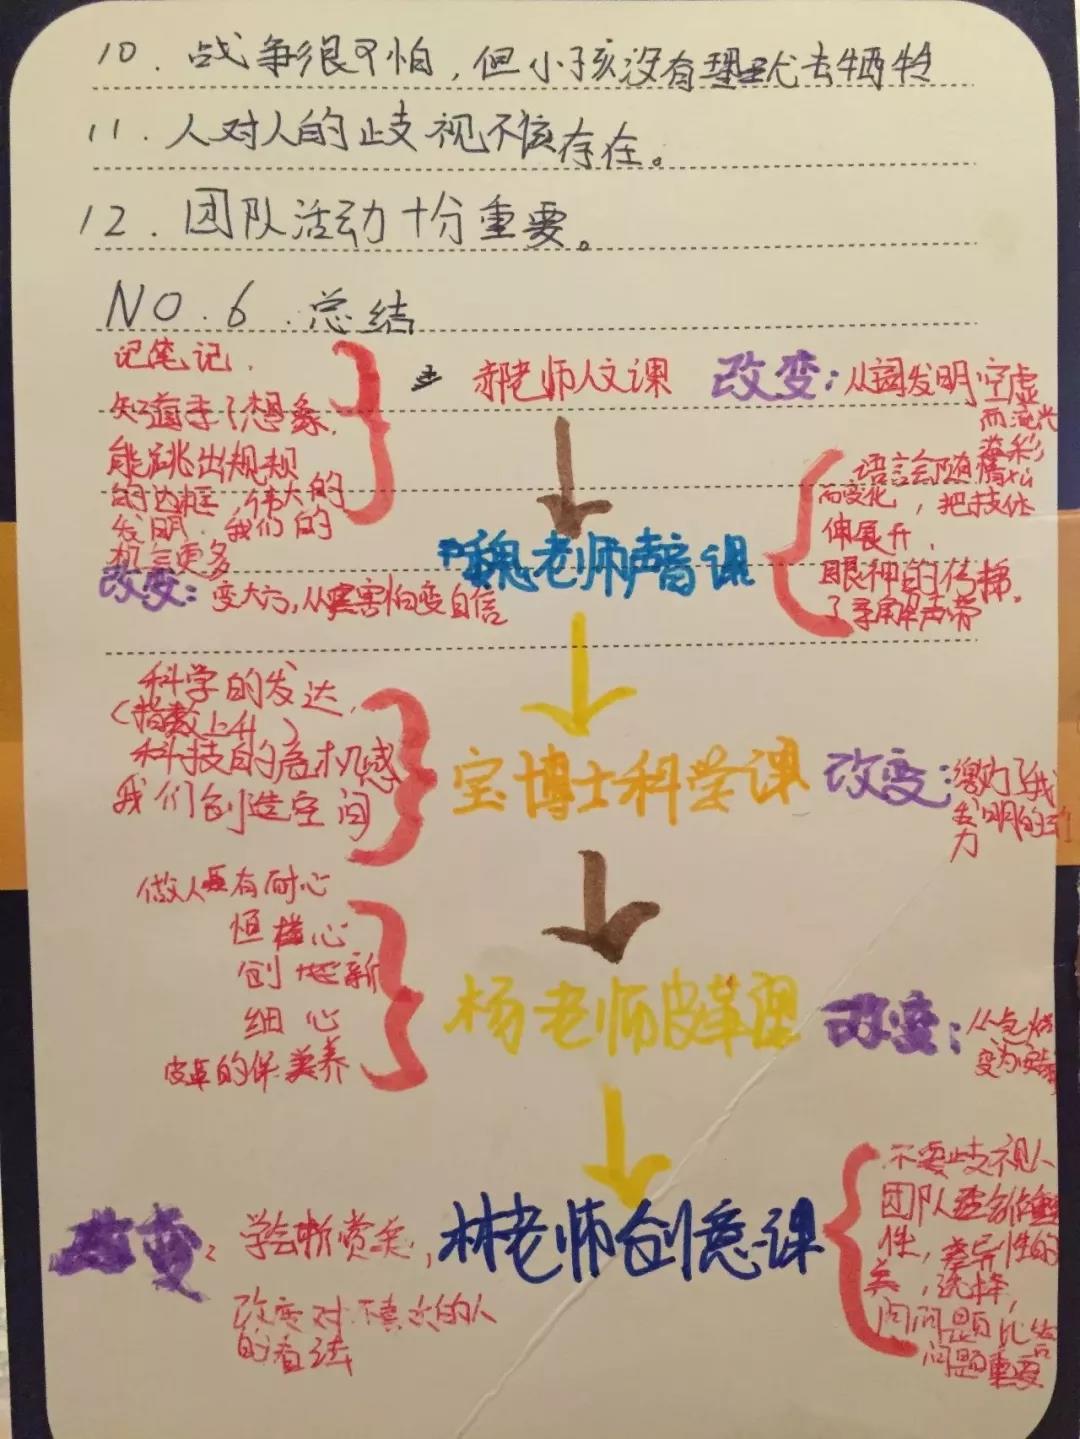 10. 战争很可怕，但小孩没有理由去牺牲
11. 人对人的歧视不该存在。
12. 团队活动十分重要。
NO.6. 总结
记笔记，
知道李了想象，
能跳出规规
的边框，伟大的
发明，我们的
机会更多
郝老师人文课
改变：从
发明空虚
而流光
溢彩
魏老师声音课
语言会随情
而变化，把技体
伸展开，
眼神的传递。
了解声带
改变：变大方，从害怕变自信
科学的发达，
（指数上升）
科技的危机感
我们创造空间
宝博士科学课
改变：激为了我
发明的
力
做人要有耐心
恒心
创新
细心
皮革的保养
杨老师皮革课
改变：从急燥
变为
林老师创意课
不要歧视人
团队
性，差异性的
美，选择，
问问题比答
问题重要
改变：学会欣赏美，
改变对不喜欢的人
的看法